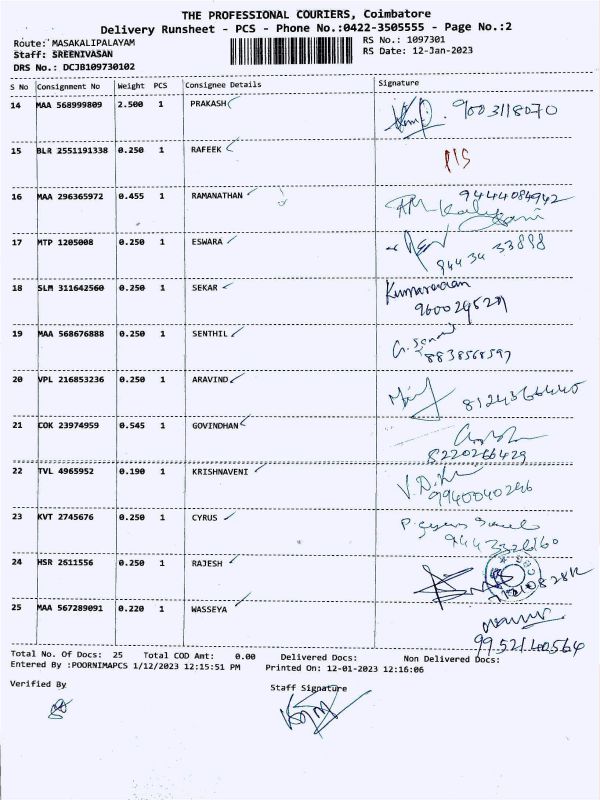 THE PROFESSIONAL COURIERS, Coimbatore
Delivery Runsheet - PCS - Phone No.:0422-3505555 - Page No.:2
Route: MASAKALIPALAYAM
RS No.: 1097301
Staff: SREENIVASAN
RS Date: 12-Jan-2023
DRS No.: DCJB109730102
S No Consignment No Weight PCS Consignee Details Signature
14 MAA 568999809 2.500 1 PRAKASH 9003118070
15 BLR 2551191338 0.250 1 RAFEEK
16 MAA 296365972 0.455 1 RAMANATHAN 9444084942
17 MTP 1205008 0.250 1 ESWARA
18 SLM 311642560 0.250 1 SEKAR
19 MAA 568676888 0.250 1 SENTHIL
8838568597
20 VPL 216853236 0.250 1 ARAVIND
21 COK 23974959 0.545 1 GOVINDHAN
8220266429
22 TVL 4965952 0.190 1 KRISHNAVENI
9940040296
23 KVT 2745676 0.250 1 CYRUS
24 HSR 2611556 0.250 1 RAJESH
25 MAA 567289091 0.220 1 WASSEYA
9952140564
Total No. Of Docs: 25 Total COD Amt: 0.00 Delivered Docs: Non Delivered Docs:
Entered By :POORNIMAPCS 1/12/2023 12:15:51 PM Printed On: 12-01-2023 12:16:06
Verified By
Staff Signature